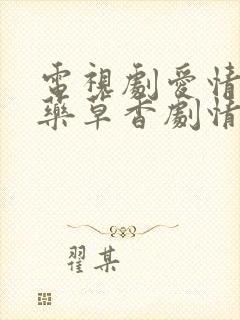 電視劇愛情
藥草香劇情
翟某